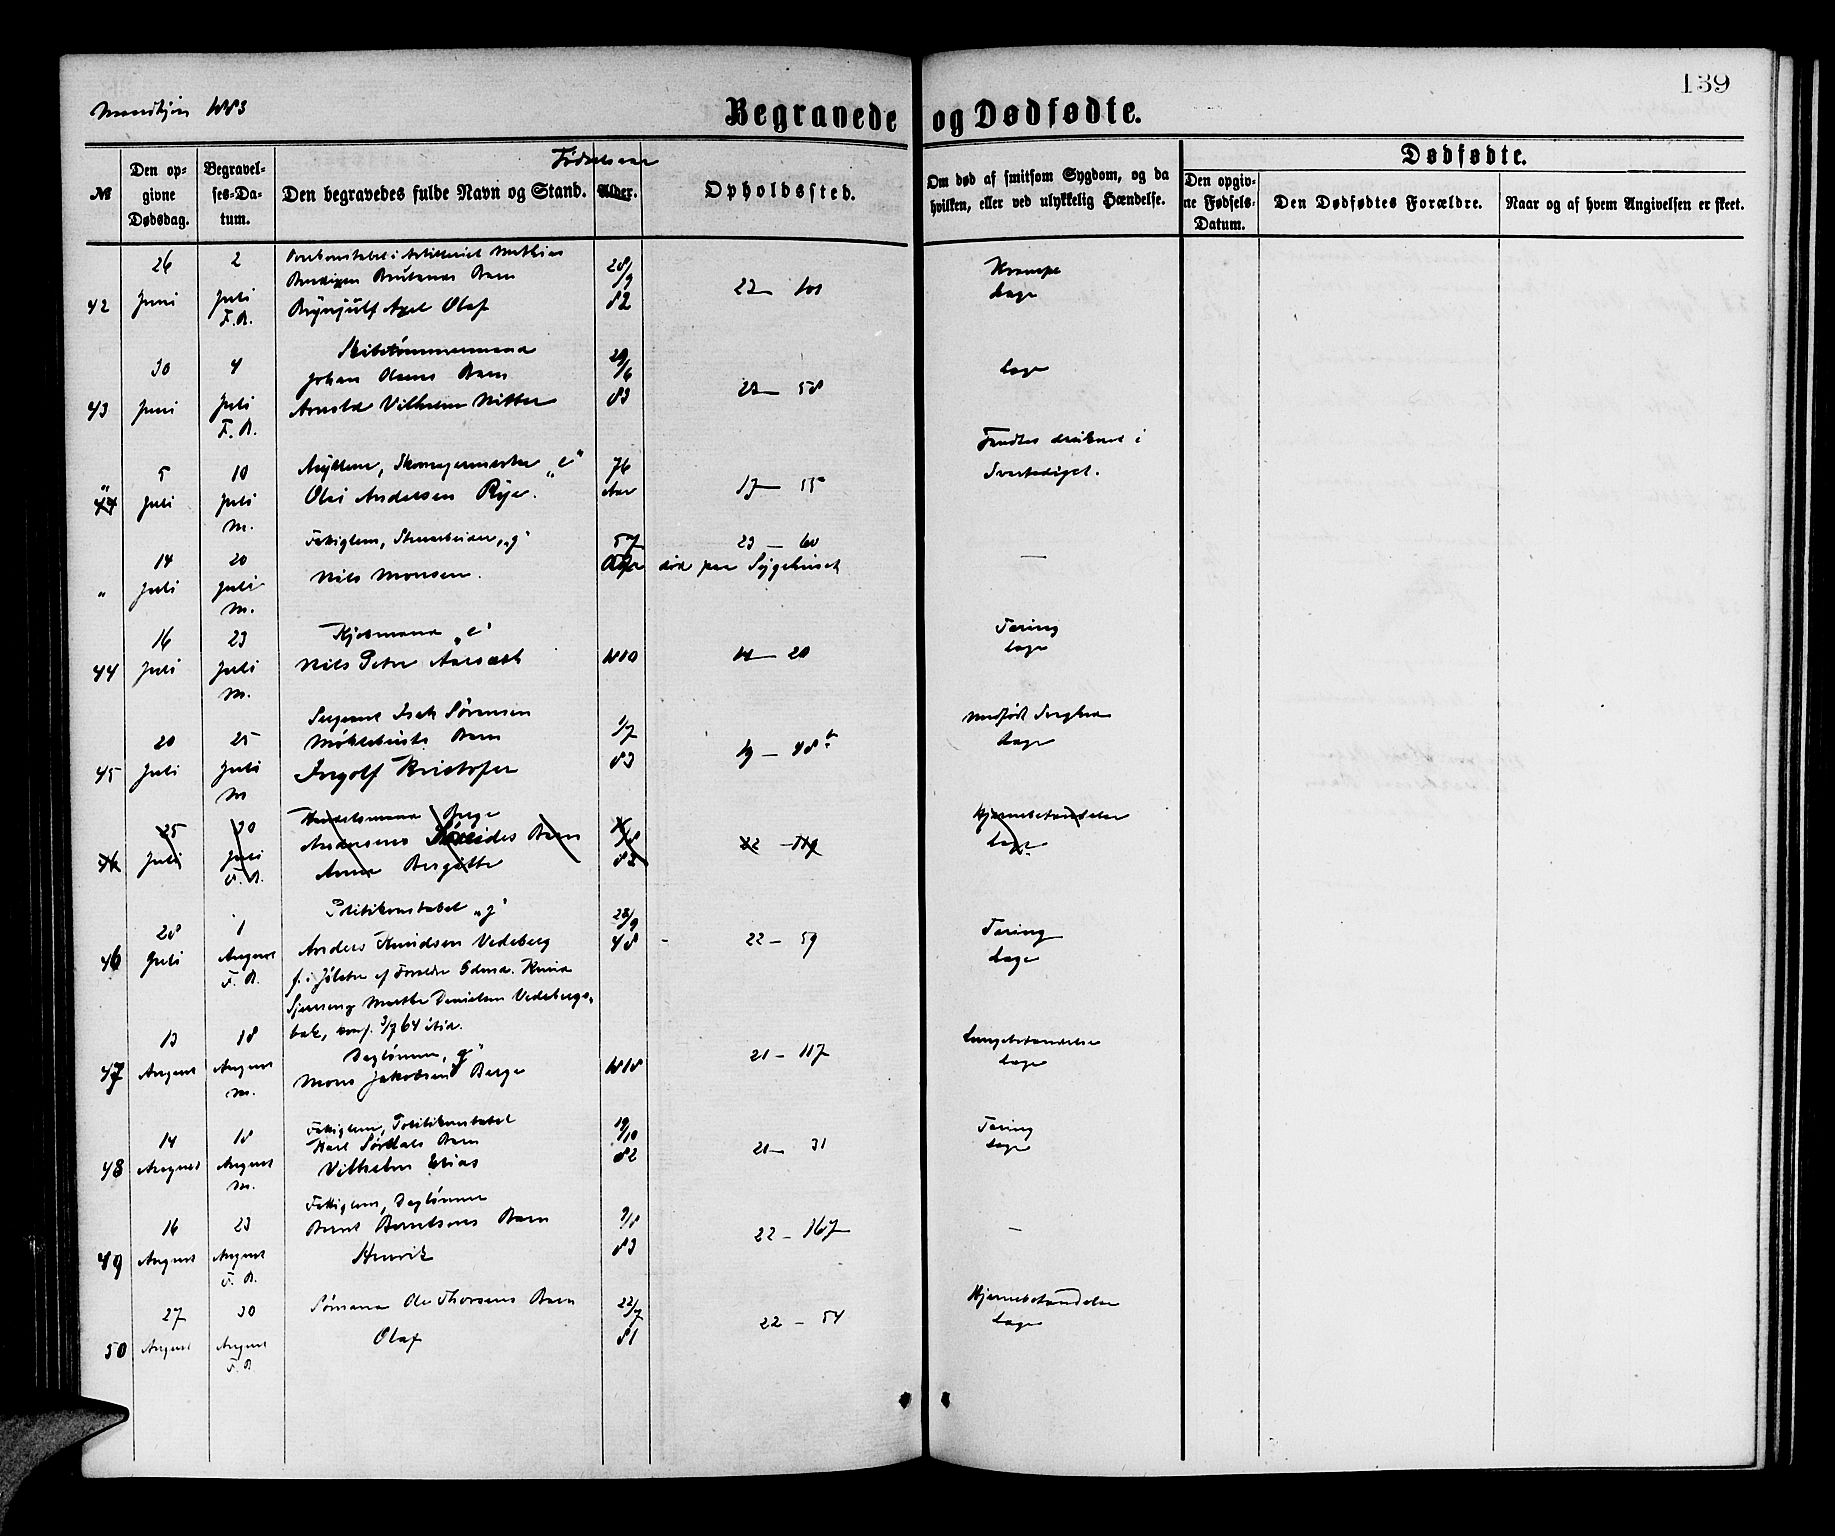 139
Mandkjøn 1883
Begravede og Dødfødte.
Dødfødte.
№
Den opgivne Dødsdag.
Begravelses-Datum.
Den begravedes fulde Navn og Stand.
Fødselsaar
Alder.
Opholdssted.
Om død af smitsom Sygdom, og da hvilken, eller ved ulykkelig Hændelse.
Den opgivne Fødsels-Datum.
Den Dødfødtes Forældre.
Naar og af hvem Angivelsen er skeet.
42
26 Juni
2 Juli F.B.
Mathias
Barn
Brynjulf Axel Olaf
28/9 82
23 — 101
Krampe
Læge
43
30 Juni
4 Juli F.B.
Skibstømmermand
Johan Olsens Barn
Arnold Vilhelm Nitter
29/6 83
58
Læge
" 44
5 Juli
10 Juli M.
Skomagermester "e"
Ole Andersen Rye.
76 Aar
17 — 15
Fundet druknet i
Svartediget.
"
14 Juli
20 Juli M.
Fattiglem, "g"
Nils Monsen.
57 Aar
23 — 60
død paa Sygehuset
—
44
16 Juli
23 Juli M.
Kjøbmand "e"
Nils Peter
1810
20
Tæring
Læge
45
20 Juli
25 Juli M
Sergeant Isak Sørensen
Møklebusts Barn
Ingolf Kristofer
1/7 83
19 — 48 b
Medfødt Svaghed
Læge
46
25 Juli
30 Juli F.B.
Handelsmand Børge
Andersens Barn
Anna Bergitte
82
22 — 119
Hjernebetændelse
Læge
46
28 Juli
1 August F.B.
Politikonstabel "g"
Anders Knudsen Vedeberg
f. i Jølster af Forældre Gdmd. Knud
Marthe Danielsen Vedebergs-
bak, konf. 3/7 64 ibid.
28/9 48
22 — 59
Tæring
Læge
47
13 August
18 August M.
Daglønner "g"
Mons Jakobsen Berge
1818
21 — 117
Lungebetændelse
Læge
48
14 August
18 August M.
Fattiglem, Politikonstabel
Karl Sørdals Barn
Vilhelm Elias
19/10 82
21 — 31
Tæring
Læge
49
16 August
23 August F.B.
Fattiglem, Daglønner
Bernt Berntsens Barn
Henrik
9/8 83
22 — 167
—
50
27 August
30 August F.B
Sømand Ole Thorsens Barn
Olaf
22/7 81
22 — 54
Hjernebetændelse
Læge